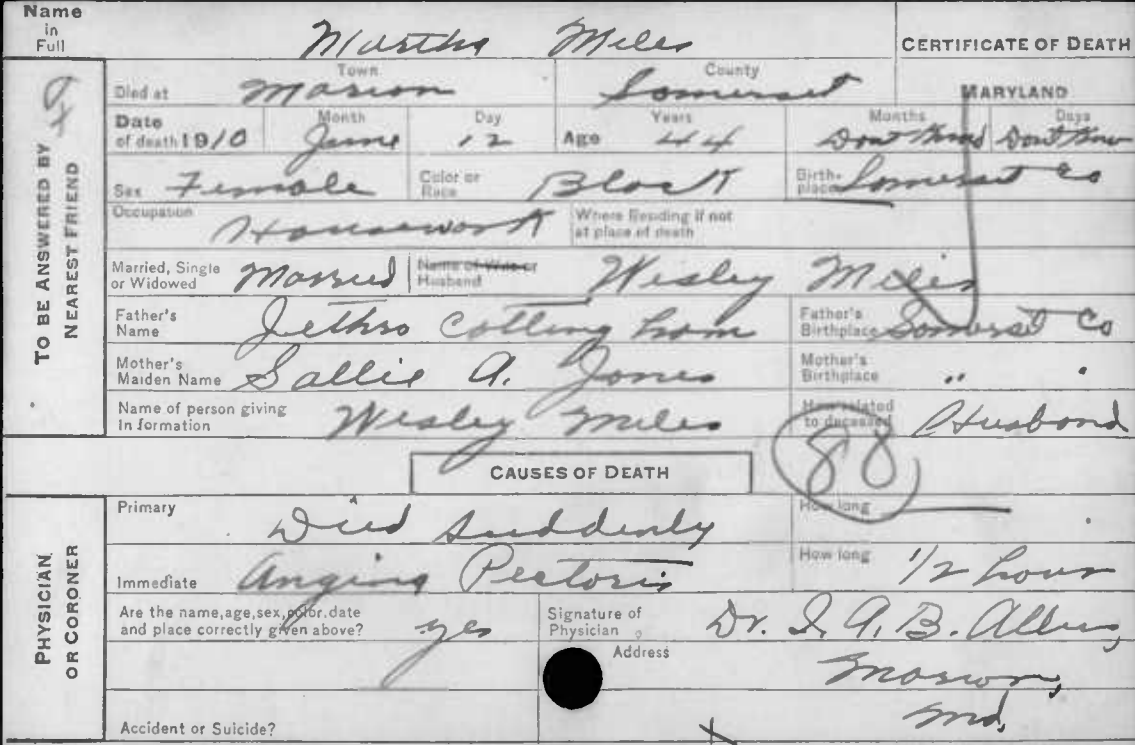 Name in Full Martha Miles CERTIFICATE OF DEATH
TO BE ANSWERED BY NEAREST FRIEND
Died at Town Marion County Somerset MARYLAND
Date of death 1910 Month June Day 12 Age Years 44 Months Dont Know Days Dont Know
Sex Female Color or Race Black Birth-place Somerset Co
Occupation Housework Where Residing if not at place of death
Married, Single or Widowed Married Name of Wife or Husband Wesley Miles
Father's Name Jethro Cottingham Father's Birthplace Somerset Co
Mother's Maiden Name Sallie A. Jones Mother's Birthplace " "
Name of person giving Information Wesley Miles How related to deceased Husband
88
CAUSES OF DEATH
PHYSICIAN OR CORONER
Primary Died Suddenly How long
Immediate Angina Pectoris How long 1/2 hour
Are the name, age, sex, color. date and place correctly given above? yes Signature of Physician Dr. I. A. B. Allen,
Address Marion,
Md.
Accident or Suicide?